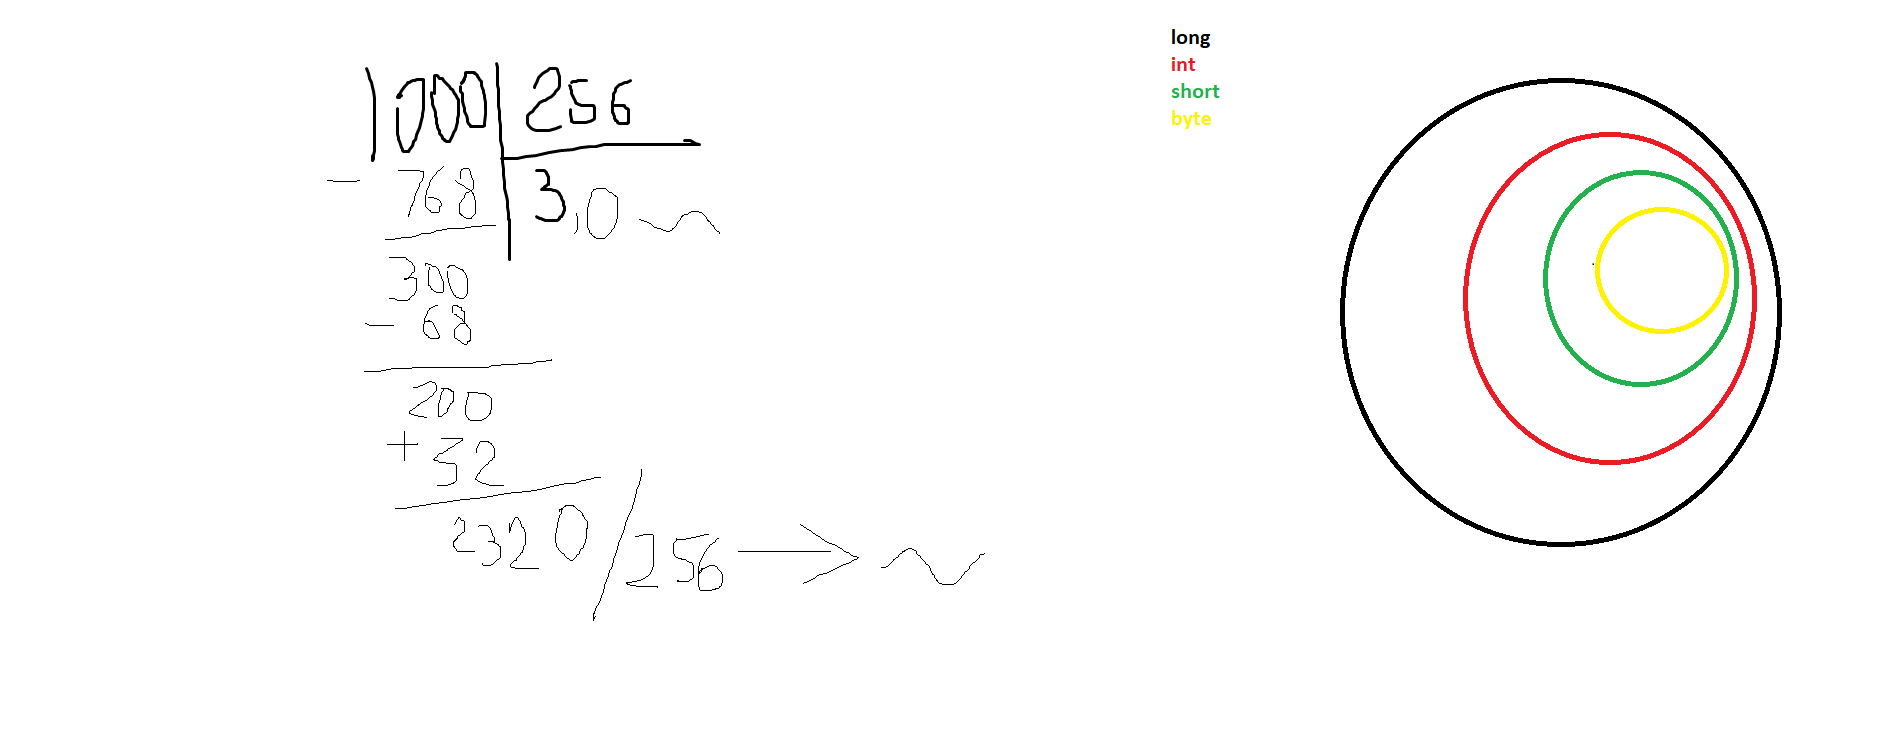 1000 256
- 768 3,0
300
- 68
200
+ 32
2320 / 256
long
int
short
byte